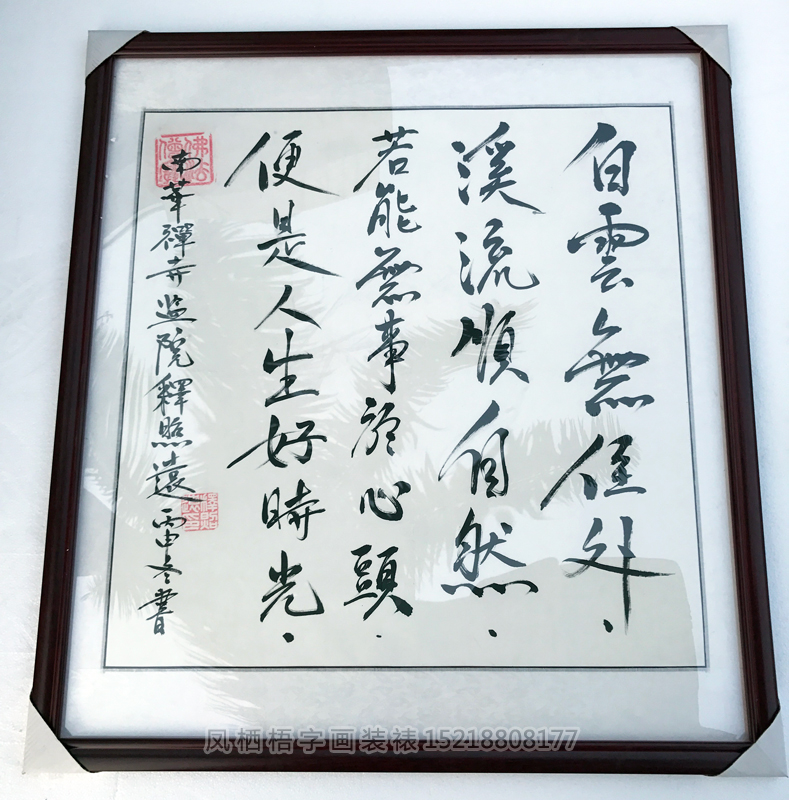 白雲無住外
溪流順自然
若能無事於心頭
便是人生好時光
南華禪寺监院釋照遠 丙申冬書
凤栖梧字画装裱 15218808177